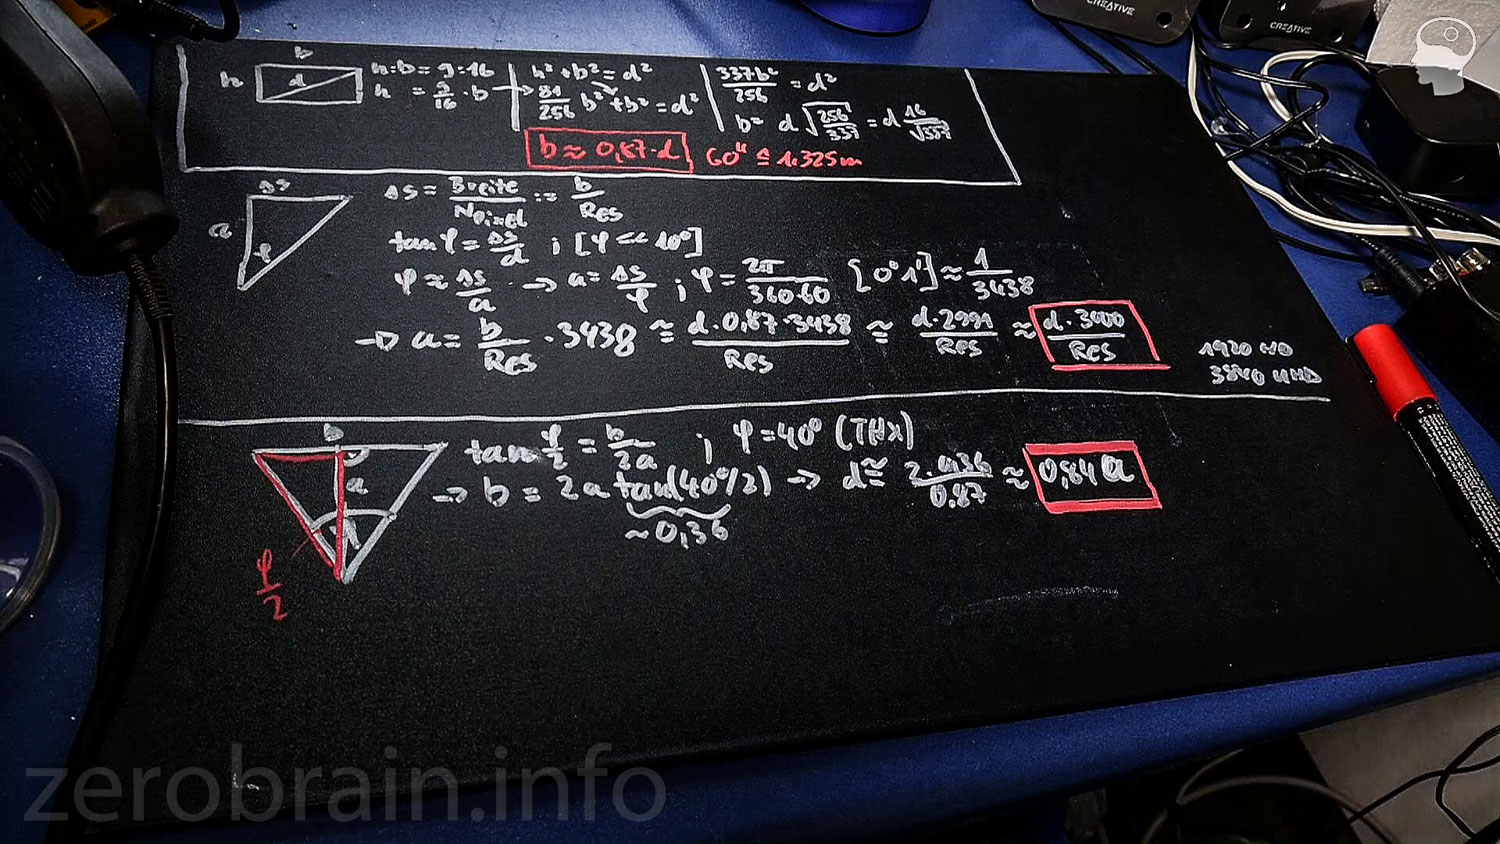 CREATIVE
CREATIVE
b
h
d
h:b=9:16
h = 9/16 · b →
h² + b² = d²
81/256 b² + b² = d²
337b²/256 = d²
b = d √(256/337) = d 16/√337
b ≈ 0,87·d
60" ≙ 1.325m
Δs
a
φ
Δs = Breite/N Pixel := b/Res
tan φ = Δs/d ; [φ << 10°]
φ ≈ Δs/a → a = Δs/φ ; φ = 2π/360·60 [0°1'] ≈ 1/3438
→ a = b/Res · 3438 ≅ d·0,87·3438/Res ≅ d·2991/Res ≈ d·3000/Res
1920 HD
3840 UHD
b
a
φ/2
tan φ/2 = b/2a ; φ=40° (THX)
→ b = 2a tan(40°/2) → d ≅ 2·0,36/0.87 ≈ 0,84a
~0,36
zerobrain.info